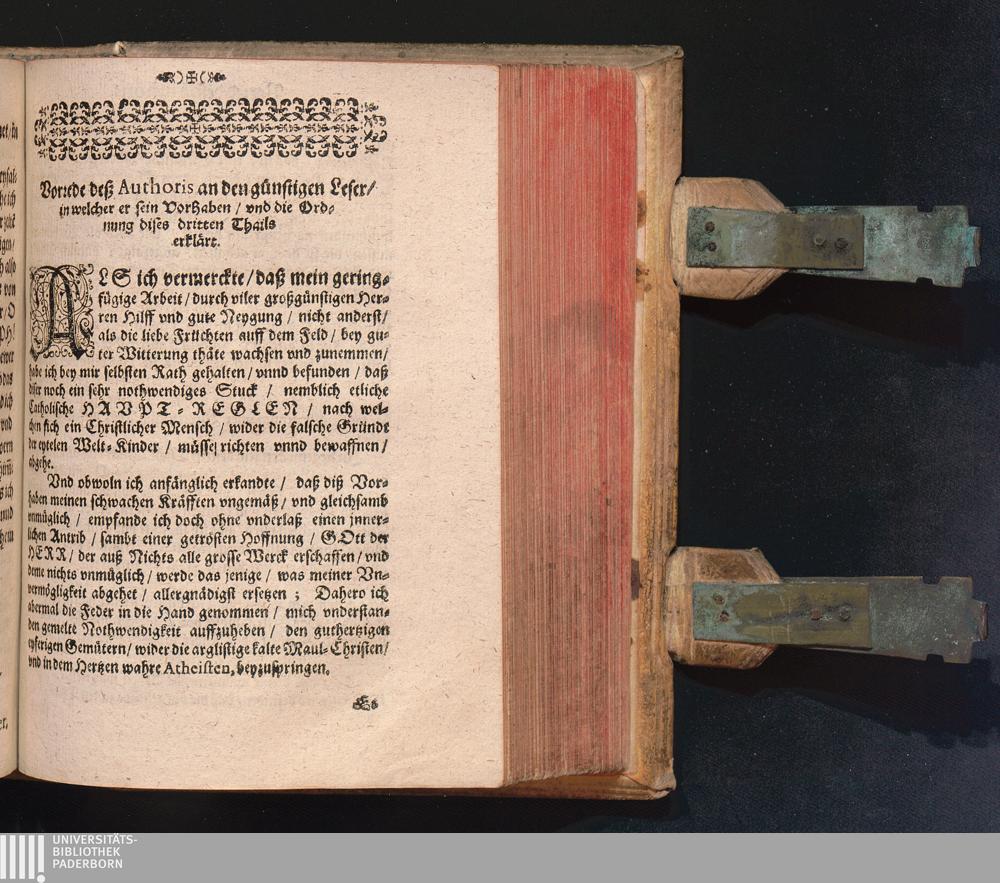 Vorrede deß Authoris an den günstigen Leser/
in welcher er sein Vorhaben / vnd die Ord-
nung dises dritten Thails
erklärt.
ALS ich vermerckte/daß mein gering-
fügige Arbeit / durch viler großgünstigen Her-
ren Hilff vnd gute Neygung / nicht anderst/
als die liebe Früchten auff dem Feld / bey gu-
ter Witterung thäte wachsen vnd zunemmen/
habe ich bey mir selbsten Rath gehalten / vnnd befunden / daß
diser noch ein sehr nothwendiges Stuck / nemblich etliche
Catholische HAVPT-REGLEN / nach wel-
chen sich ein Christlicher Mensch / wider die falsche Gründt
der eytelen Welt-Kinder / müsse richten vnnd bewaffnen /
abgehe.
Vnd obwoln ich anfänglich erkandte / daß diß Vor-
haben meinen schwachen Kräfften vngemäß / vnd gleichsamb
vnmüglich / empfande ich doch ohne vnderlaß einen jnner-
lichen Antrib / sambt einer getrösten Hoffnung / GOtt der
HERR / der auß Nichts alle grosse Werck erschaffen / vnd
deme nichts vnmüglich / werde das jenige / was meiner Vn-
vermögligkeit abgehet / allergnädigst ersetzen ; Dahero ich
abermal die Feder in die Hand genommen / mich vnderstan-
den gemelte Nothwendigkeit auffzuheben / den guthertzigen
eyferigen Gemütern / wider die arglistige kalte Maul-Christen/
vnd in dem Hertzen wahre Atheisten, beyzuspringen.
Es
UNIVERSITÄTS-
BIBLIOTHEK
PADERBORN